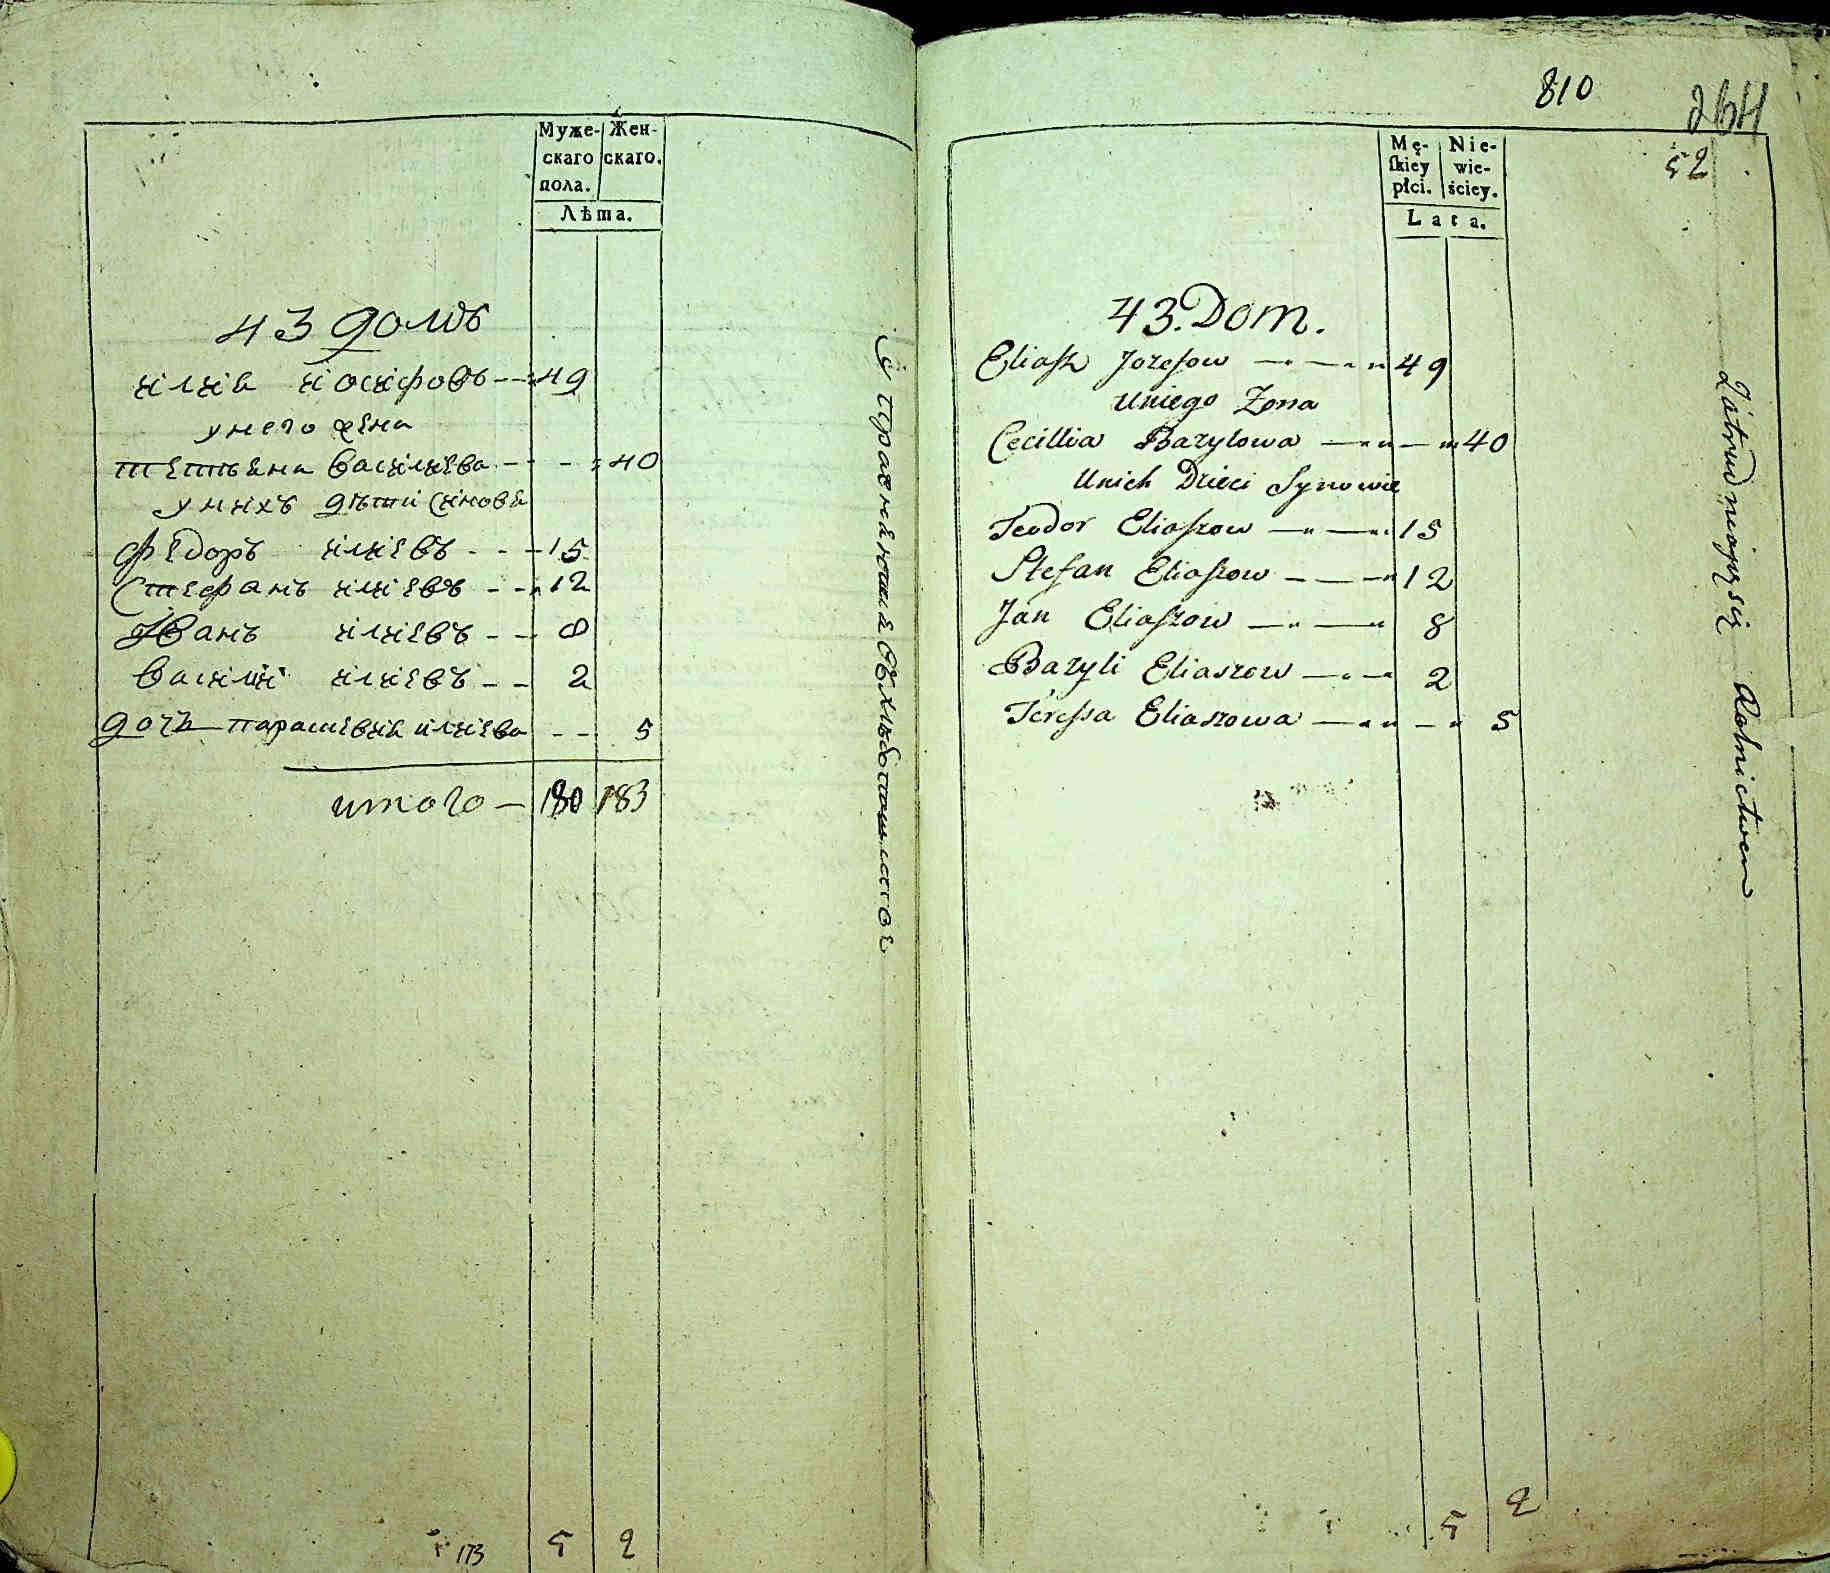 Муже-
скаго
пола.
Жен-
скаго.
Лѣта.
43 домъ
илиа иосифовъ 49
у него жена
татьана василиева 40
у нихъ дѣти синови
федоръ илиевъ 15
стефанъ илиевъ 12
Иванъ илиевъ 8
василий илиевъ 2
дочь парасковиа илиева 5
итого 180 183
173 5 2
810
52
Mę-
skiey
płci.
Nie-
wie-
ściey.
Lata.
43. Dom.
Eliasz Jozefow 49
U niego Zona
Cecillia Bazylowa 40
U nich Dzieci Synowie
Teodor Eliaszow 15
Stefan Eliaszow 12
Jan Eliaszow 8
Bazyli Eliaszow 2
Teressa Eliaszowa 5
Zatrudniaiący się Rolnictwem
5 2